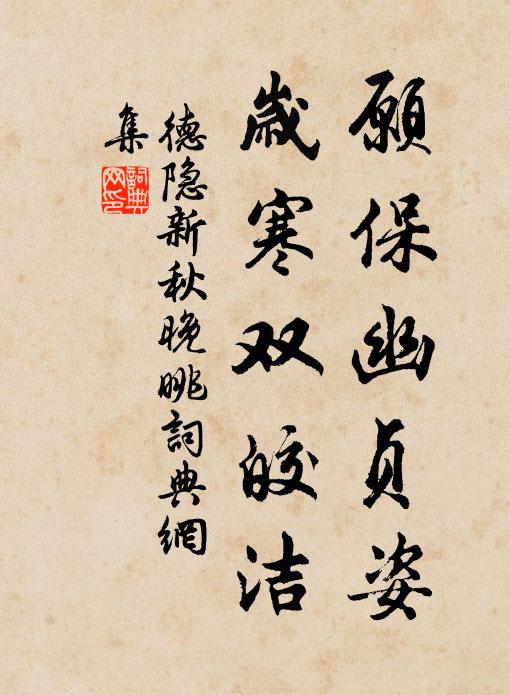 願保幽貞姿
歲寒双皎洁
德隐新秋晚眺詞典網
集
詞典
网印